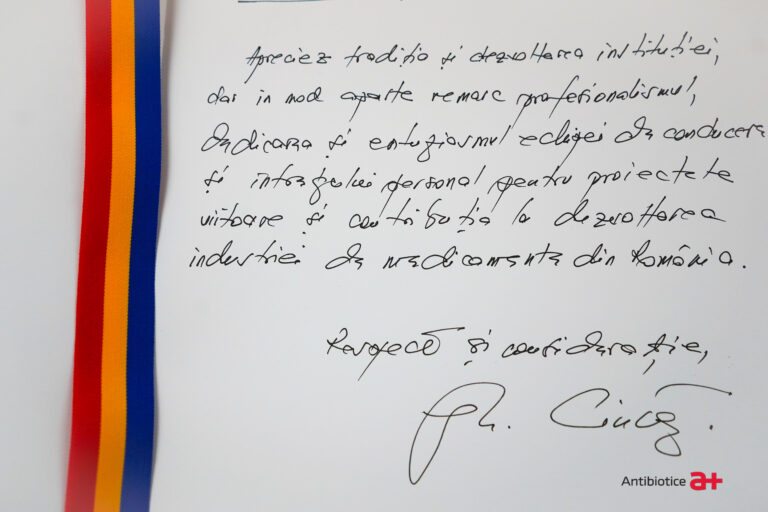 Apreciez tradiția și dezvoltarea instituției,
dar în mod aparte remarc profesionalismul,
dedicarea și entuziasmul echipei de conducere
și întregului personal pentru proiectele
viitoare și contribuția la dezvoltarea
industriei de medicamente din România.
Respect și considerație,
Gh. Ciucă.
Antibiotice a+